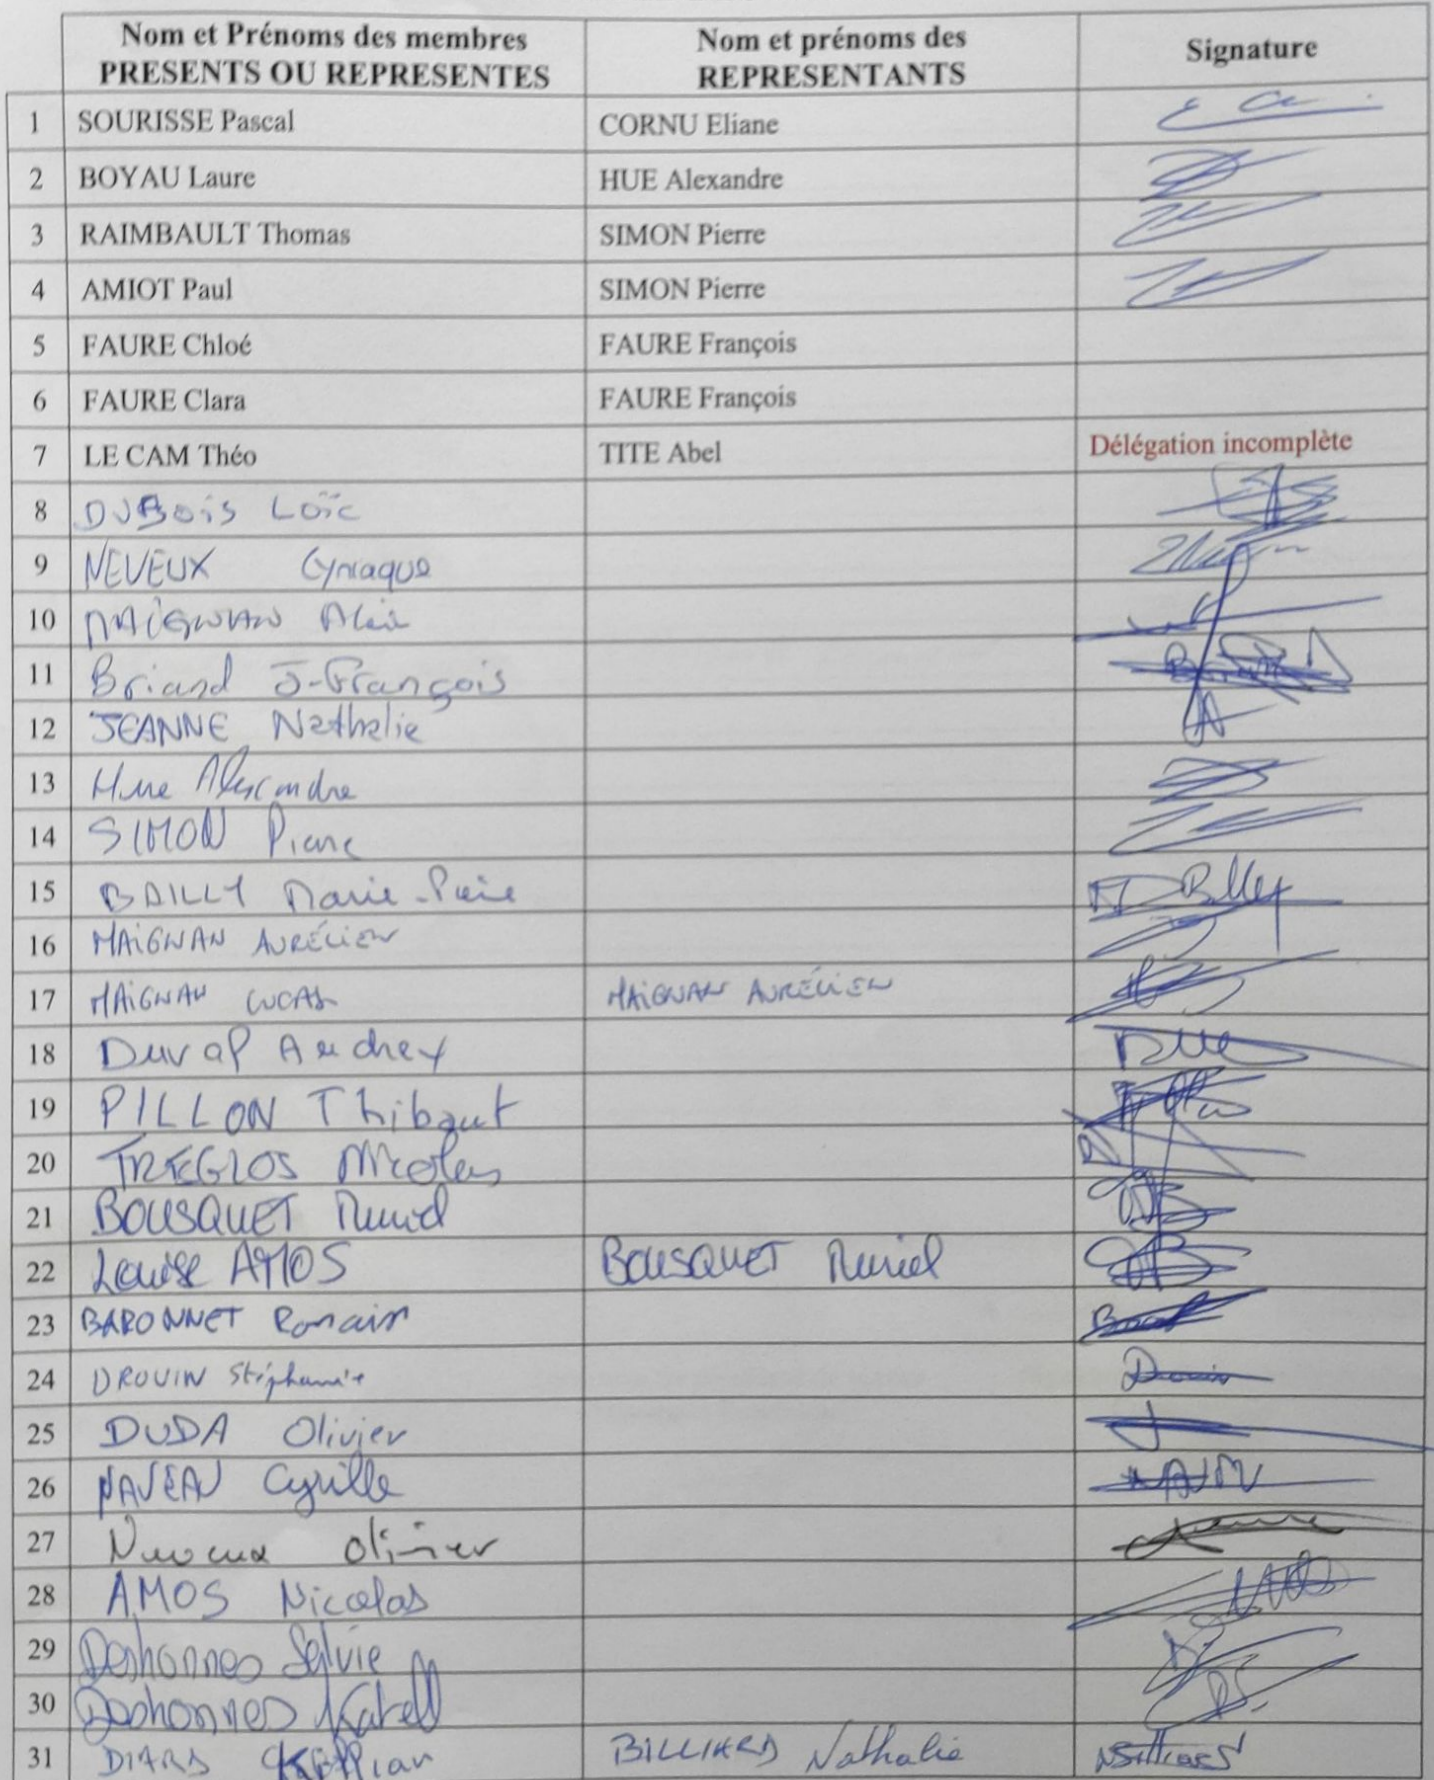 Nom et Prénoms des membres Nom et prénoms des Signature
PRESENTS OU REPRESENTES REPRESENTANTS
1 SOURISSE Pascal CORNU Eliane
2 BOYAU Laure HUE Alexandre
3 RAIMBAULT Thomas SIMON Pierre
4 AMIOT Paul SIMON Pierre
5 FAURE Chloé FAURE François
6 FAURE Clara FAURE François
7 LE CAM Théo TITE Abel Délégation incomplète
8 DUBois Loïc
9 NEVEUX Cyriaque
10 MAiGNAN Alain
11 Briand J-François
12 JEANNE Nathalie
13 Hue Alexandre
14 SIMON Pierre
15 BAILLY Marie-Pierre
16 MAiGNAN AURÉLiEN
17 MAiGNAN LUCAS MAiGNAN AURÉLiEN
18 Duval Audrey
19 PILLON Thibaut
20 TREGLOS Nicolas
21 BOUSQUET Muriel
22 Louise AMOS BOUSQUET Muriel
23 BARONNET Romain
24 DROUIN Stéphanie Drouin
25 DUDA Olivier
26 NAVEAU Cyrille
27 Neveux Olivier
28 AMOS Nicolas
29 Deshonnes Sylvie
30 Deshonnes Katell
31 DIARD BILLIARD Nathalie